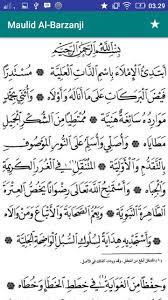 03.29
Maulid Al-Barzanji
بِسْمِ اللهِ الرَّحْمٰنِ الرَّحِيْمِ
أَبْتَدِئُ الْإِمْلَاءَ بِاسْمِ الذَّاتِ الْعَلِيَّةِ ۞ مُسْتَدِرًّا
فَيْضَ الْبَرَكَاتِ عَلَى مَا أَنَالَهُ وَأَوْلَاهُ ۞ وَأُثَنِّي بِحَمْدٍ
مَوَارِدُهُ سَائِغَةٌ هَنِيَّةٌ ۞ مُمْتَطِيًا مِنَ الشُّكْرِ الْجَمِيْلِ
مَطَايَاهُ ۞ وَأُصَلِّي وَأُسَلِّمُ عَلَى النُّوْرِ الْمَوْصُوْفِ
بِالتَّقَدُّمِ وَالْأَوَّلِيَّةِ ۞ الْمُنْتَقِلِ فِي الْغُرَرِ الْكَرِيْمَةِ
وَالْجِبَاهِ ۞ وَأَسْتَمْنِحُ اللهَ تَعَالَى رِضْوَانًا يَخُصُّ الْعِتْرَةَ
الطَّاهِرَةَ النَّبَوِيَّةَ ۞ وَيَعُمُّ الصَّحَابَةَ وَالْأَتْبَاعَ وَمَنْ وَالَاهُ
۞ وَأَسْتَجْدِيْهِ هِدَايَةً لِسُلُوْكِ السُّبُلِ الْوَاضِحَةِ الْجَلِيَّةِ
وَحِفْظًا مِنَ الْغَوَايَةِ فِي خِطَطِ الْخَطَإِ وَخُطَاهُ